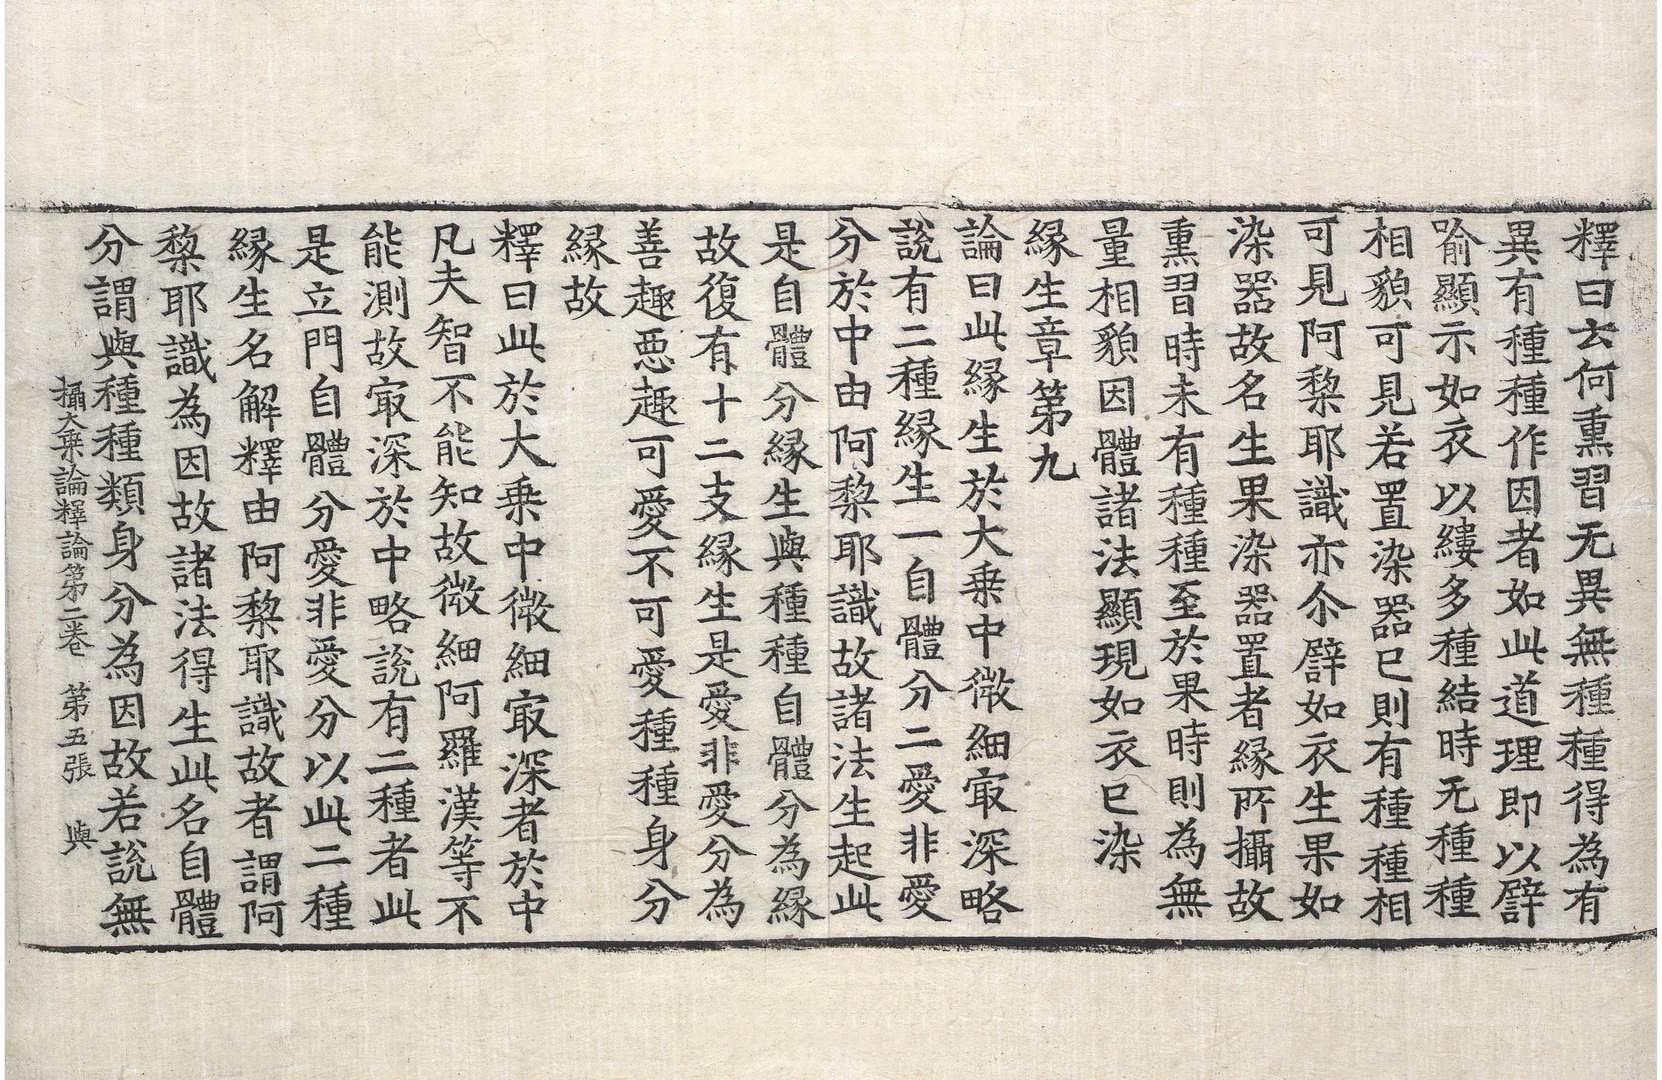 釋曰云何熏習无異無種種得為有
異有種種作因者如此道理即以譬
喻顯示如衣以縷多種結時无種種
相貌可見若置染器已則有種種相
可見阿黎耶識亦尒譬如衣生果如
染器故名生果染器置者緣所攝故
熏習時未有種種至於果時則為無
量相貌因體諸法顯現如衣已染
緣生章第九
論曰此緣生於大乘中微細㝡深略
說有二種緣生一自體分二愛非愛
分於中由阿黎耶識故諸法生起此
是自體分緣生與種種自體分為緣
故復有十二支緣生是愛非愛分為
善趣惡趣可愛不可愛種種身分
緣故
釋曰此於大乘中微細㝡深者於中
凡夫智不能知故微細阿羅漢等不
能測故㝡深於中略說有二種者此
是立門自體分愛非愛分以此二種
緣生名解釋由阿黎耶識故者謂阿
黎耶識為因故諸法得生此名自體
分謂與種種類身分為因故若說無
攝大乘論釋論第二卷　第五張　與